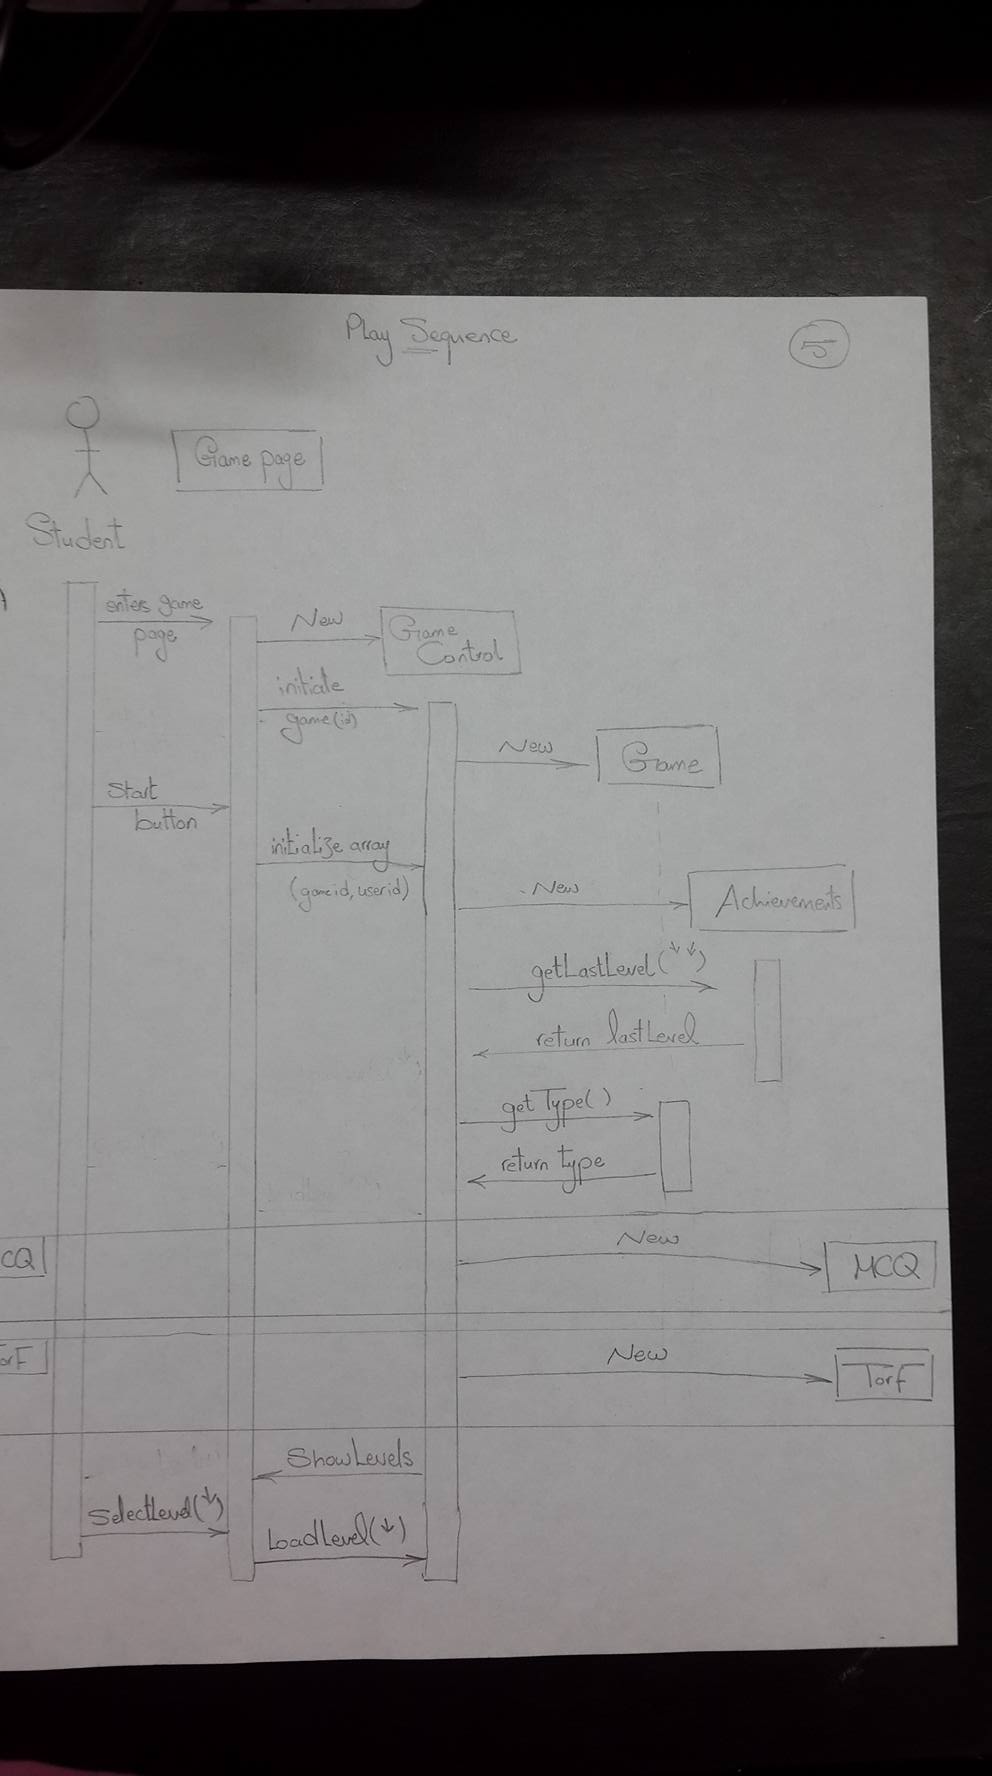 Play Sequence
5
Game page
Student
enters game
page
New
Game
Control
initiate
game(id)
New
Game
Start
button
initialize array
(gameid, userid)
New
Achievements
getLastLevel(↓↓)
return lastLevel
getType()
return type
New
CQ
MCQ
New
orF
TorF
ShowLevels
SelectLevel(↓)
LoadLevel(↓)